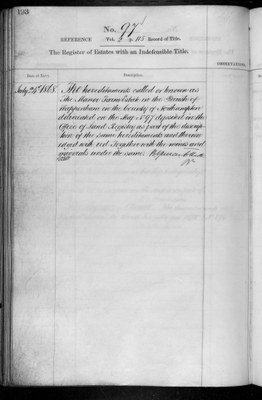 193
No. 97
REFERENCE Vol. 2 p. 115 Record of Title.
The Register of Estates with an Indefeasible Title.
OBSERVATIONS.
Date of Entry. Description.
July 24th 1868. The hereditaments called or known as
The Manor Farm Estate in the Parish of
in the County of Northampton
delineated on the Map No 97 deposited in the
Office of Land Registry as part of the descrip
tion of the same hereditaments and therein
edged with red Together with the mines and
minerals under the same.